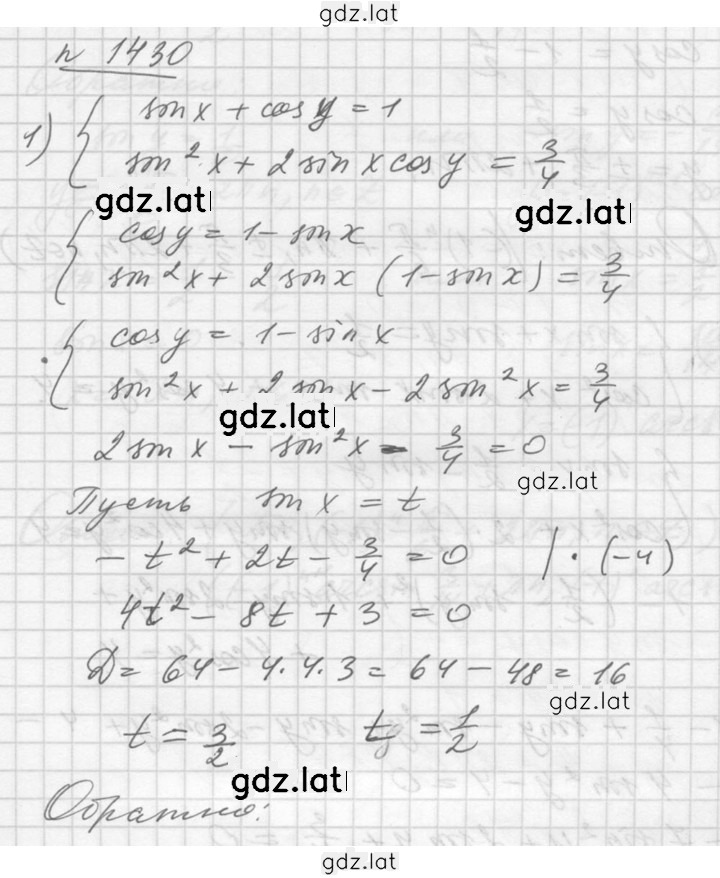 gdz.lat
n 1430
1) { sin x + cos y = 1
sin² x + 2 sin x cos y = 3/4
gdz.lat
gdz.lat
{ cos y = 1 - sin x
sin² x + 2 sin x (1 - sin x) = 3/4
{ cos y = 1 - sin x
sin² x + 2 sin x - 2 sin² x = 3/4
gdz.lat
2 sin x - sin² x - 3/4 = 0
gdz.lat
Пусть sin x = t
- t² + 2t - 3/4 = 0 | · (-4)
4t² - 8t + 3 = 0
D = 64 - 4·4·3 = 64 - 48 = 16
gdz.lat
t = 3/2 t = 1/2
gdz.lat
Обратно:
gdz.lat